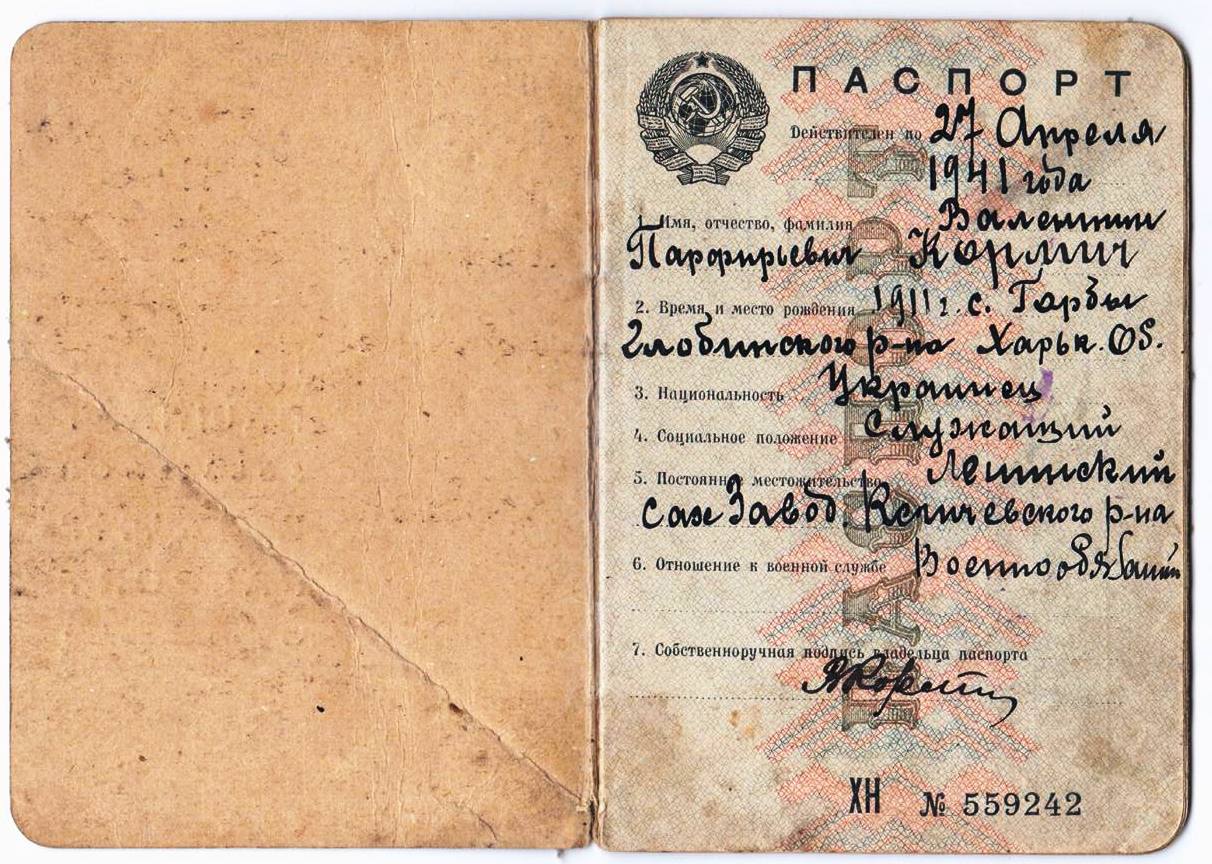 ПАСПОРТ
Действителен по 27 Апреля
1941 года
1. Имя, отчество, фамилия Валентин
Парфирьевич Кормич
2. Время и место рождения 1911 г. с. Горбы
Глобинского р-на Харьк. Об.
3. Национальность Украинец
4. Социальное положение Служащий
5. Постоянн местожительство Ленинский
сах Завод. р-на
6. Отношение к военной службе Военнообязаный
7. Собственноручная подпись владельца паспорта
ХН № 559242
ПАСПОРТ